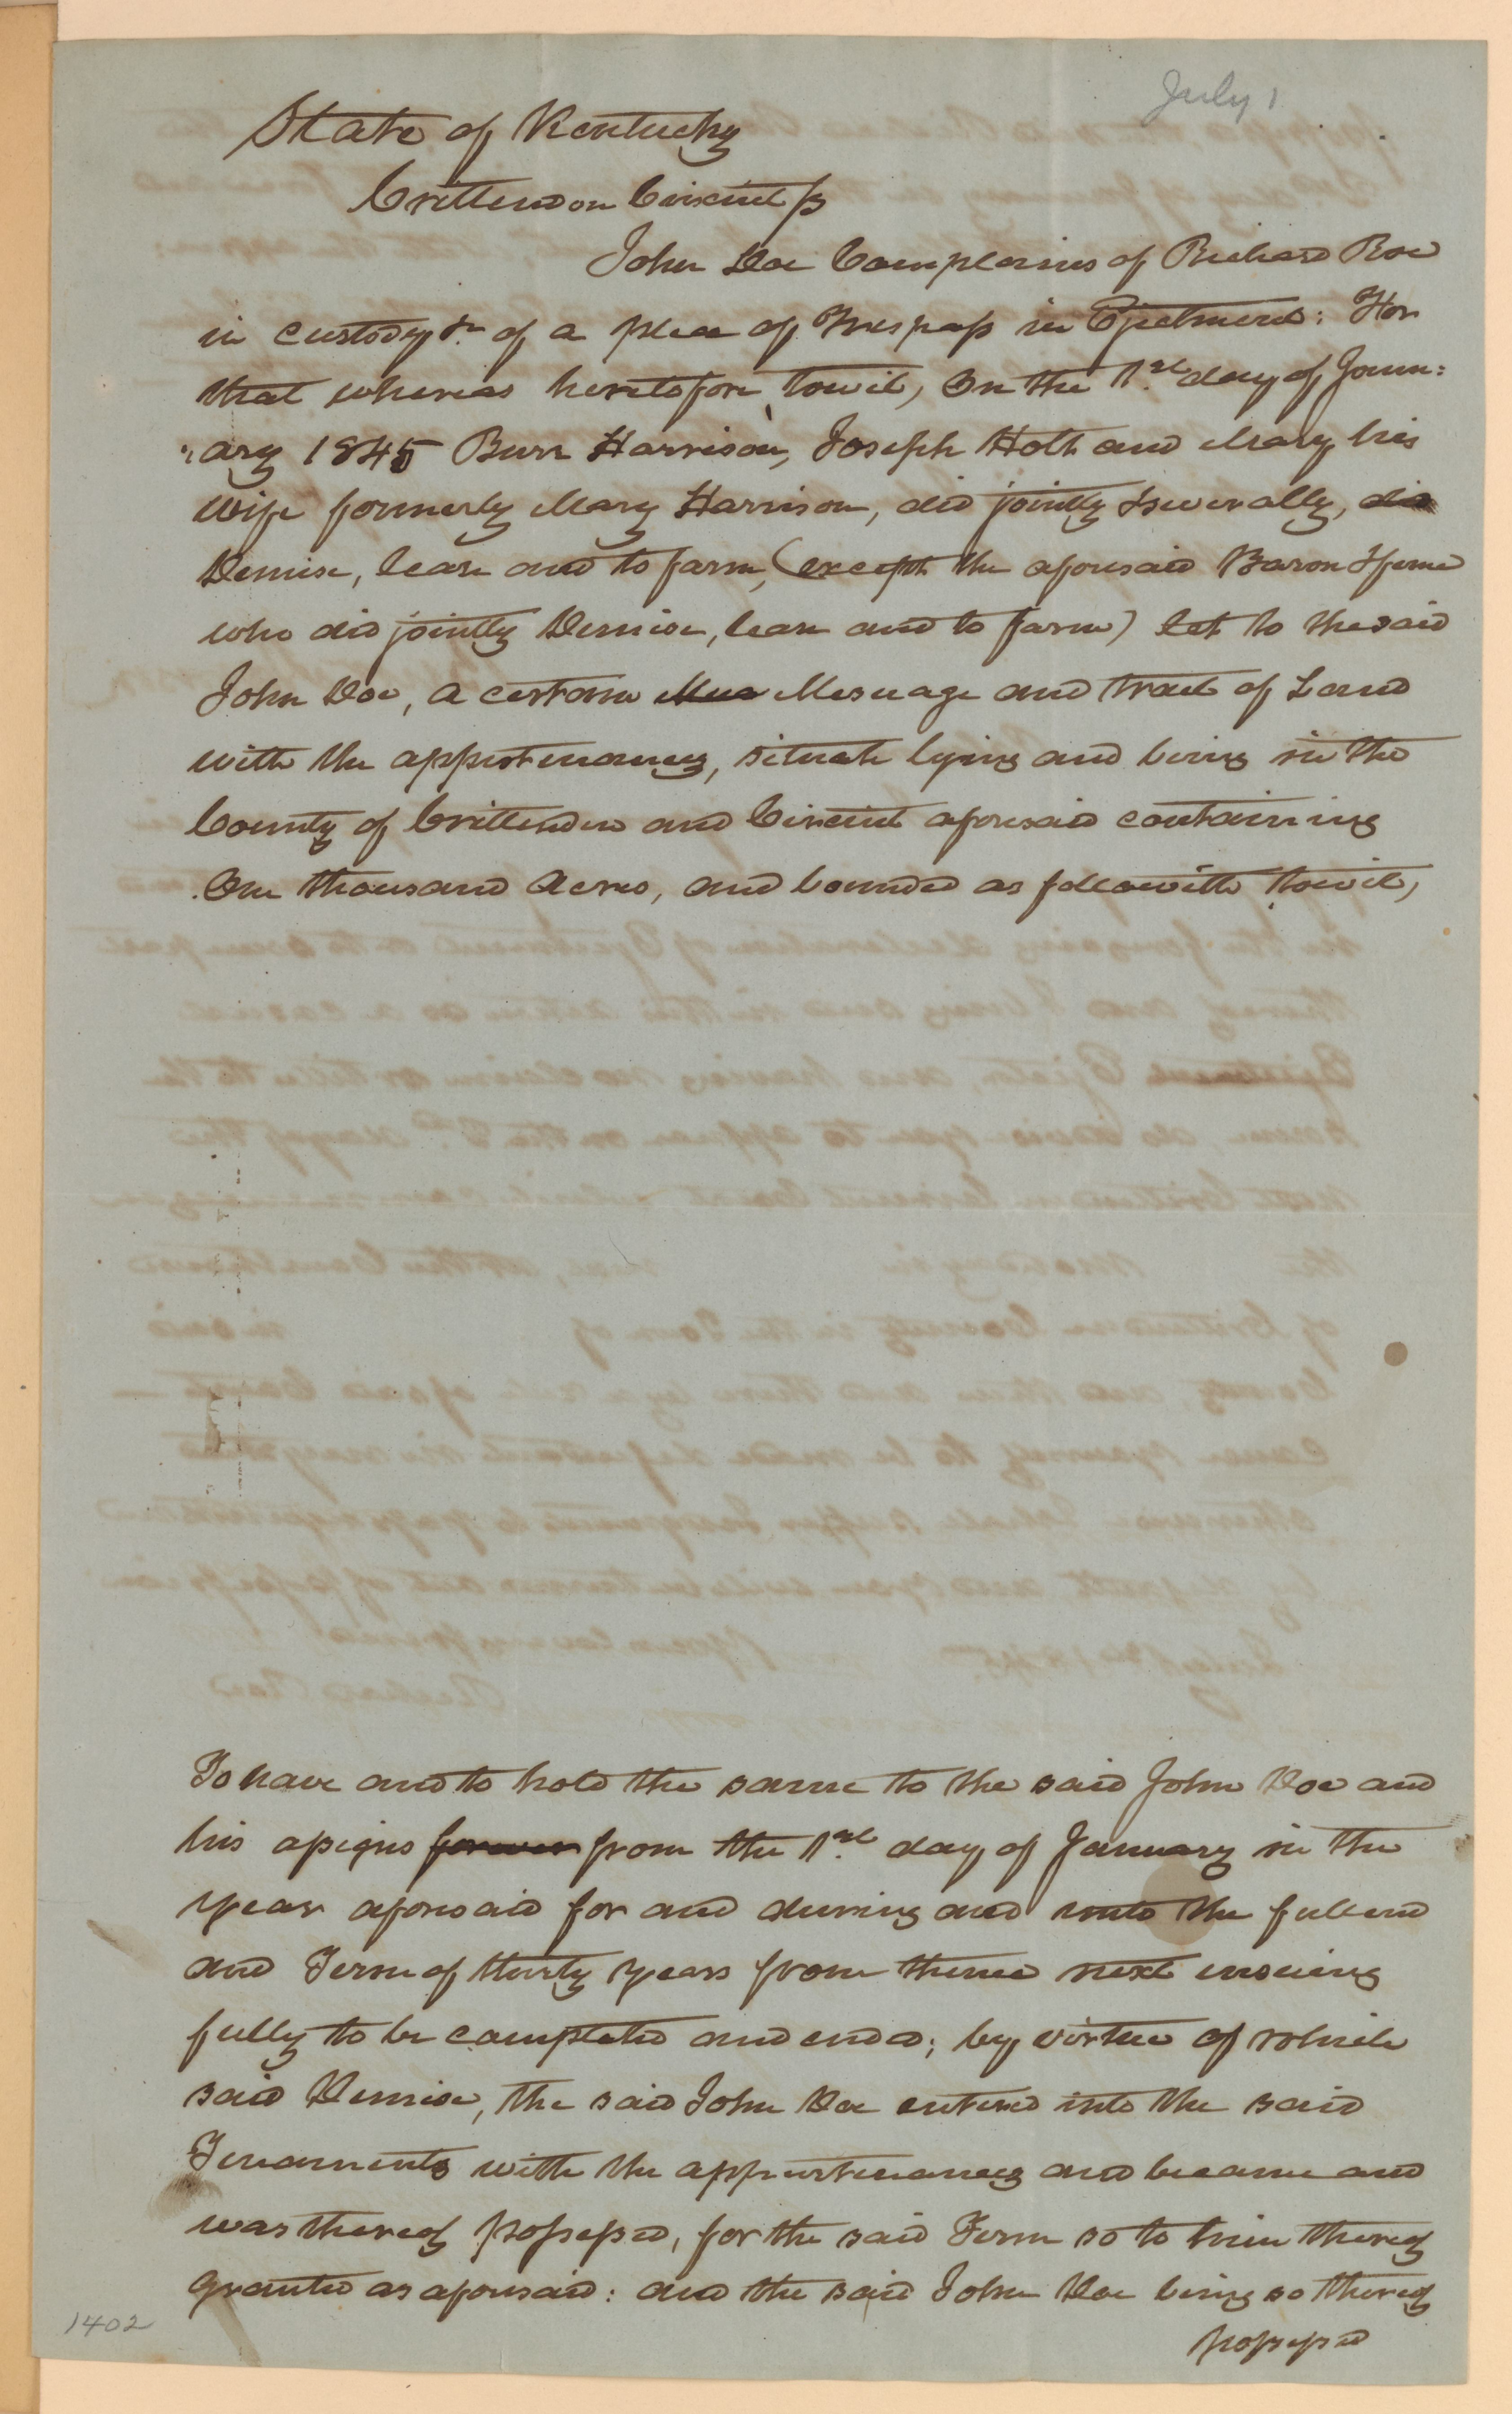 July 1
State of Kentucky
Crittendon Circuit ss
John Doe Complains of Richard Roe
in custody &c of a plea of Trespass in Ejectment: For
that whereas heretofore, towit, On the 1st day of Janu=
=ary 1845 Burr Harrison, Joseph Holt and Mary his
wife formerly Mary Harrison, did jointly & severally, did
Demise, lease and to farm, (except the aforesaid Baron & feme
who did jointly Demise, lease and to farm) let to the said
John Doe, a certain Mes Mesuage and tract of Land
with the appurtenances, situate lying and being in the
County of Crittenden and Circuit aforesaid containing
One thousand Acres, and bounded as followith towit,
To have and to hold the same to the said John Doe and
his assigns forever from the 1st day of January in the
year aforesaid for and during and unto the full end
and Term of thirty years from thence next ensuing
fully to be completed and ended; by virtue of which
said Demise, the said John Doe entered into the said
Tenaments with the appurtenances and became and
was thereof possessed, for the said Term so to him thereof
granted as aforesaid: and the said John Doe being so thereof
possessed
1402